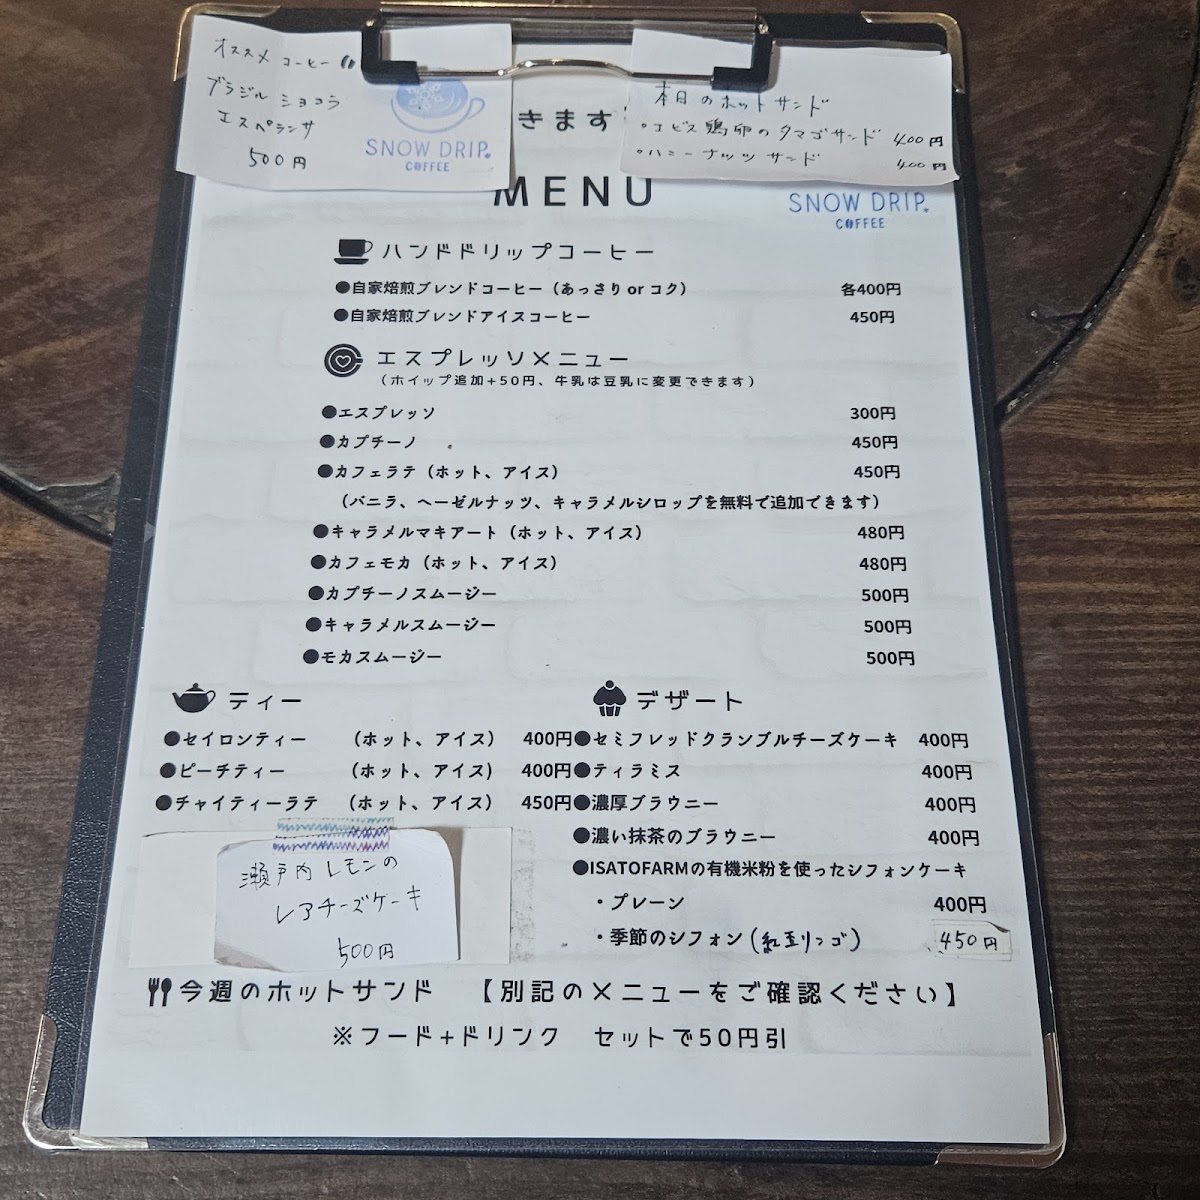 オススメ コーヒー
ブラジル ショコラ
エスペランサ
500円
SNOW DRIP.
COFFEE
きます
本日のホットサンド
・エビス鶏卵のタマゴサンド 400円
・ハニーナッツサンド 400円
MENU
SNOW DRIP.
COFFEE
ハンドドリップコーヒー
●自家焙煎ブレンドコーヒー（あっさり or コク） 各400円
●自家焙煎ブレンドアイスコーヒー 450円
エスプレッソメニュー
（ホイップ追加+50円、牛乳は豆乳に変更できます）
●エスプレッソ 300円
●カプチーノ 450円
●カフェラテ（ホット、アイス） 450円
（バニラ、ヘーゼルナッツ、キャラメルシロップを無料で追加できます）
●キャラメルマキアート（ホット、アイス） 480円
●カフェモカ（ホット、アイス） 480円
●カプチーノスムージー 500円
●キャラメルスムージー 500円
●モカスムージー 500円
ティー
●セイロンティー （ホット、アイス） 400円
●ピーチティー （ホット、アイス） 400円
●チャイティーラテ （ホット、アイス） 450円
瀬戸内レモンの
レアチーズケーキ
500円
デザート
●セミフレッドクランブルチーズケーキ 400円
●ティラミス 400円
●濃厚ブラウニー 400円
●濃い抹茶のブラウニー 400円
●ISATOFARMの有機米粉を使ったシフォンケーキ
・プレーン 400円
・季節のシフォン（紅玉リンゴ） 450円
今週のホットサンド 【別記のメニューをご確認ください】
※フード+ドリンク セットで50円引